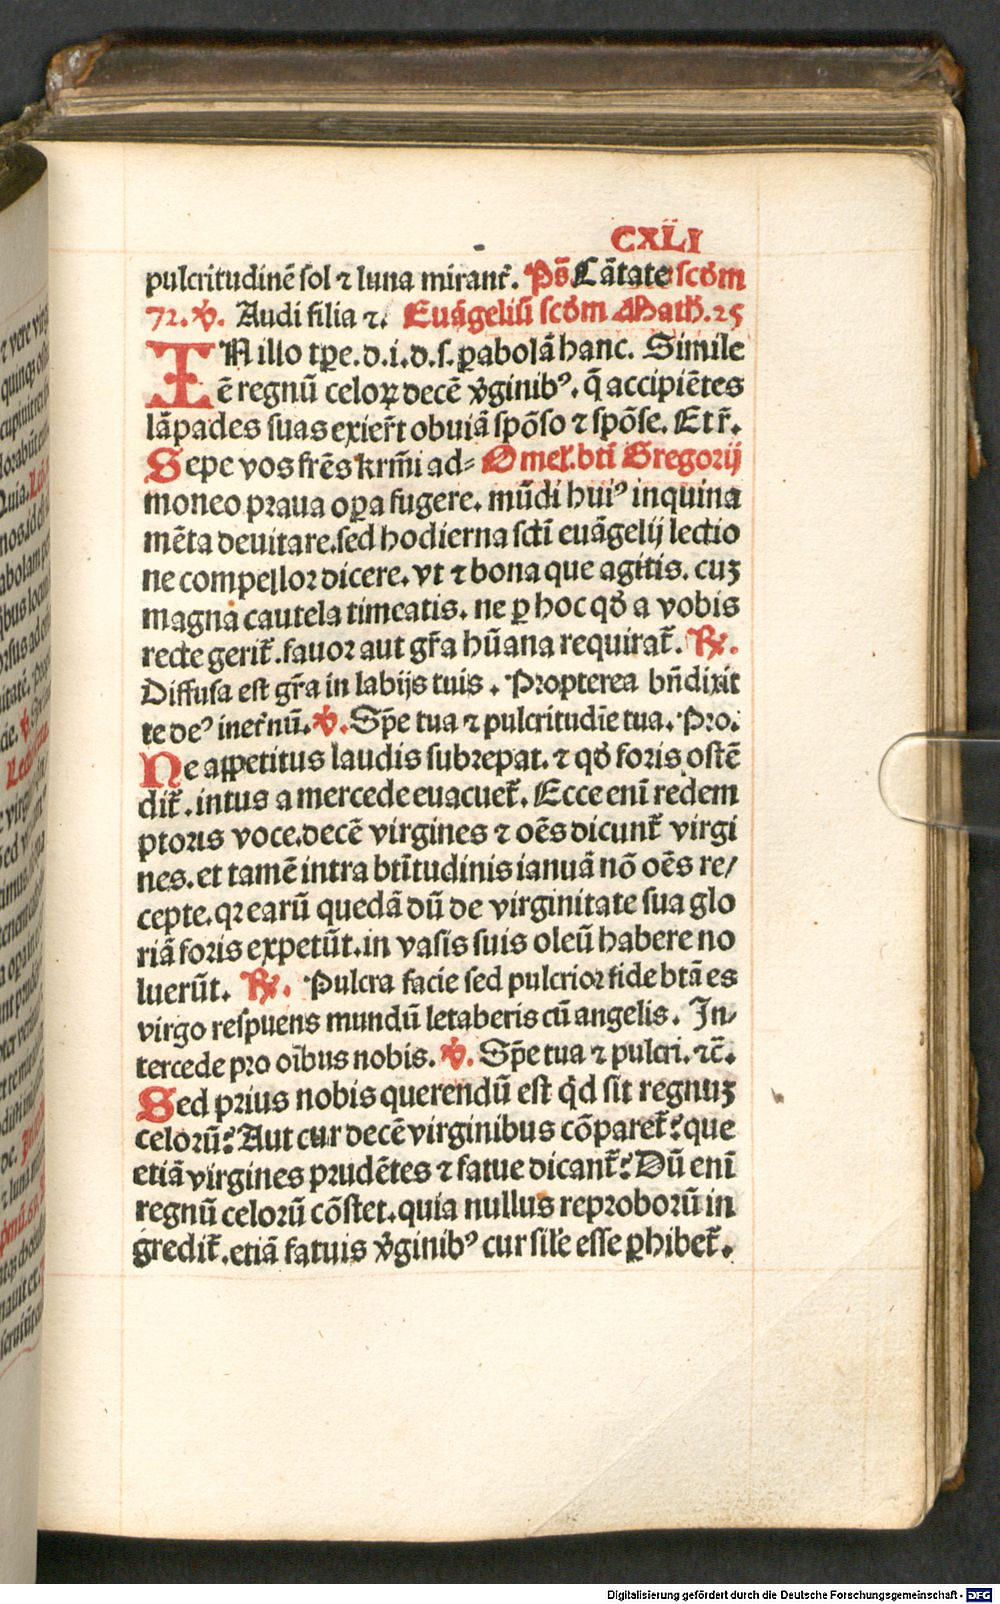 CXLI
pulcritudinē sol ⁊ luna mirant̄. Ps̄ Cātate scd̄m
72. ꝟ. Audi filia ⁊. Euāgeliū scd̄m Math̄. 25
IN illo tp̄e. d. i. d. s. ꝑabolā hanc. Simile
ē regnū celoꝝ decē ꝟginibꝰ. q̄ accipiētes
lāpades suas exier̄t obuiā spōso ⁊ spōse. Et r̄.
Sepe vos fr̄es kr̄mi ad⸗ Omel̄. bt̄i Gregorij
moneo praua oꝑa fugere. mūdi huiꝰ inquina
mēta deuitare. sed hodierna sct̄i euāgelij lectio
ne compellor dicere. vt ⁊ bona que agitis. cuʒ
magna cautela timeatis. ne ꝑ hoc qd̄ a vobis
recte gerit̄. fauor aut gr̄a hūana requirat̄. ℟.
Diffusa est gr̄a in labijs tuis. Propterea bn̄dixit
te deꝰ in et̄nū. ꝟ. Sp̄e tua ⁊ pulcritudīe tua. Pro.
Ne appetitus laudis subrepat. ⁊ qd̄ foris ostē
dit̄. intus a mercede euacuet̄. Ecce enī redem
ptoris voce. decē virgines ⁊ oēs dicunt̄ virgi
nes. et tamē intra bt̄itudinis ianuā nō oēs re/
cepte. qꝛ earū quedā dū de virginitate sua glo
riā foris expetūt. in vasis suis oleū habere no
luerūt. ℟. Pulcra facie sed pulcrior fide btā es
virgo respuens mundū letaberis cū angelis. In⸗
tercede pro oībus nobis. ꝟ. Sp̄e tua ⁊ pulcri. ⁊c̄.
Sed prius nobis querendū est qd̄ sit regnuʒ
celorū? Aut cur decē virginibus cōparet̄? que
etiā virgines prudētes ⁊ fatue dicant̄? Dū enī
regnū celorū cōstet. quia nullus reproborū in
gredit̄. etiā fatuis ꝟginibꝰ cur sil̄e esse ꝑhibet̄.
Digitalisierung gefördert durch die Deutsche Forschungsgemeinschaft - DFG